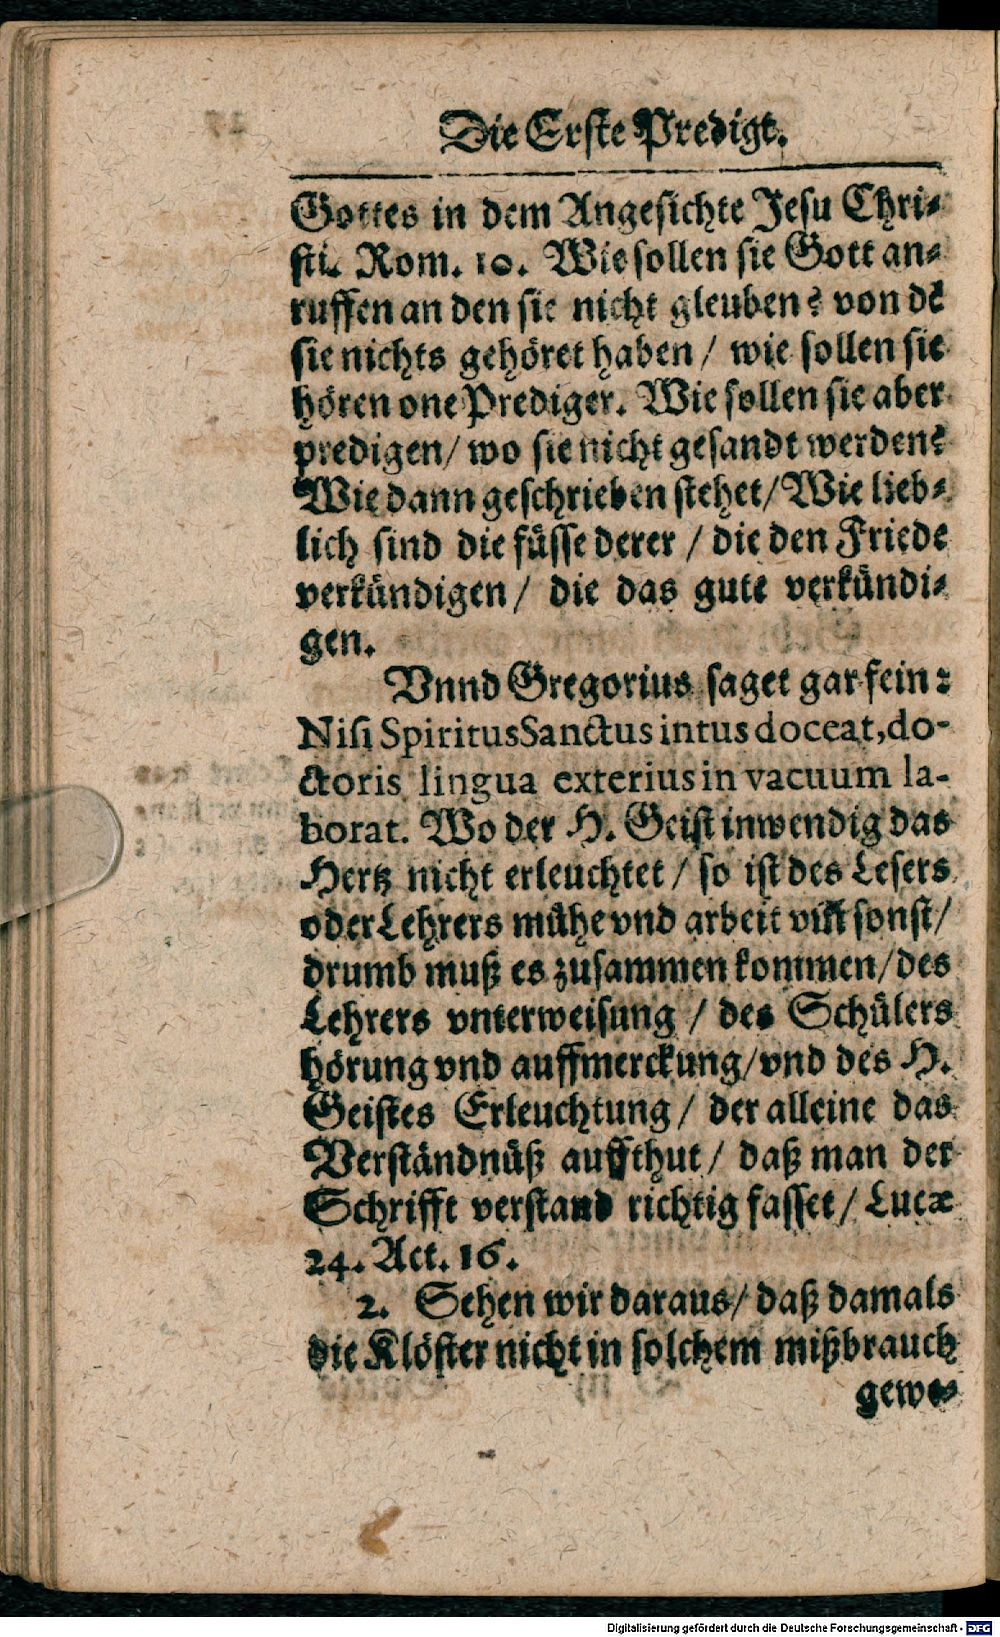 Die Erste Predigt.
Gottes in dem Angesichte Jesu Chri⸗
sti. Rom. 10. Wie sollen sie Gott an⸗
ruffen an den sie nicht gleuben? von dẽ
sie nichts gehöret haben / wie sollen sie
hören one Prediger. Wie sollen sie aber
predigen / wo sie nicht gesandt werden?
Wie dann geschrieben stehet / Wie lieb⸗
lich sind die füsse derer / die den Friede
verkündigen / die das gute verkündi⸗
gen.
Vnnd Gregorius saget gar fein:
Nisi Spiritus Sanctus intus doceat, do-
ctoris lingua exterius in vacuum la-
borat. Wo der H. Geist inwendig das
Hertz nicht erleuchtet / so ist des Lesers
oder Lehrers mühe vnd arbeit vmb sonst /
drumb muß es zusammen kommen / des
Lehrers vnterweisung / des Schülers
hörung vnd auffmerckung / vnd des H.
Geistes Erleuchtung / der alleine das
Verständnüß auffthut / daß man der
Schrifft verstand richtig fasset / Lucæ
24. Act. 16.
2. Sehen wir daraus / daß damals
die Klöster nicht in solchem mißbrauch
gewe⸗
Digitalisierung gefördert durch die Deutsche Forschungsgemeinschaft - DFG